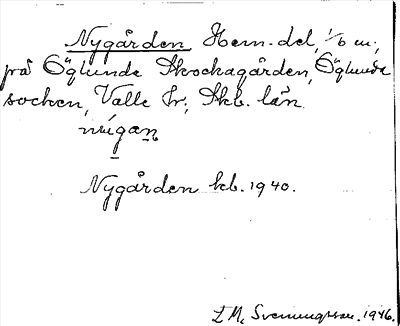 Nygården Hem. del, 1/6 m.,
på Öglunda Skockagården, Öglunda
socken, Valle hr; Skb. län.
nýgan
Nygården kb. 1940.
L M. Sveningsson. 1946.